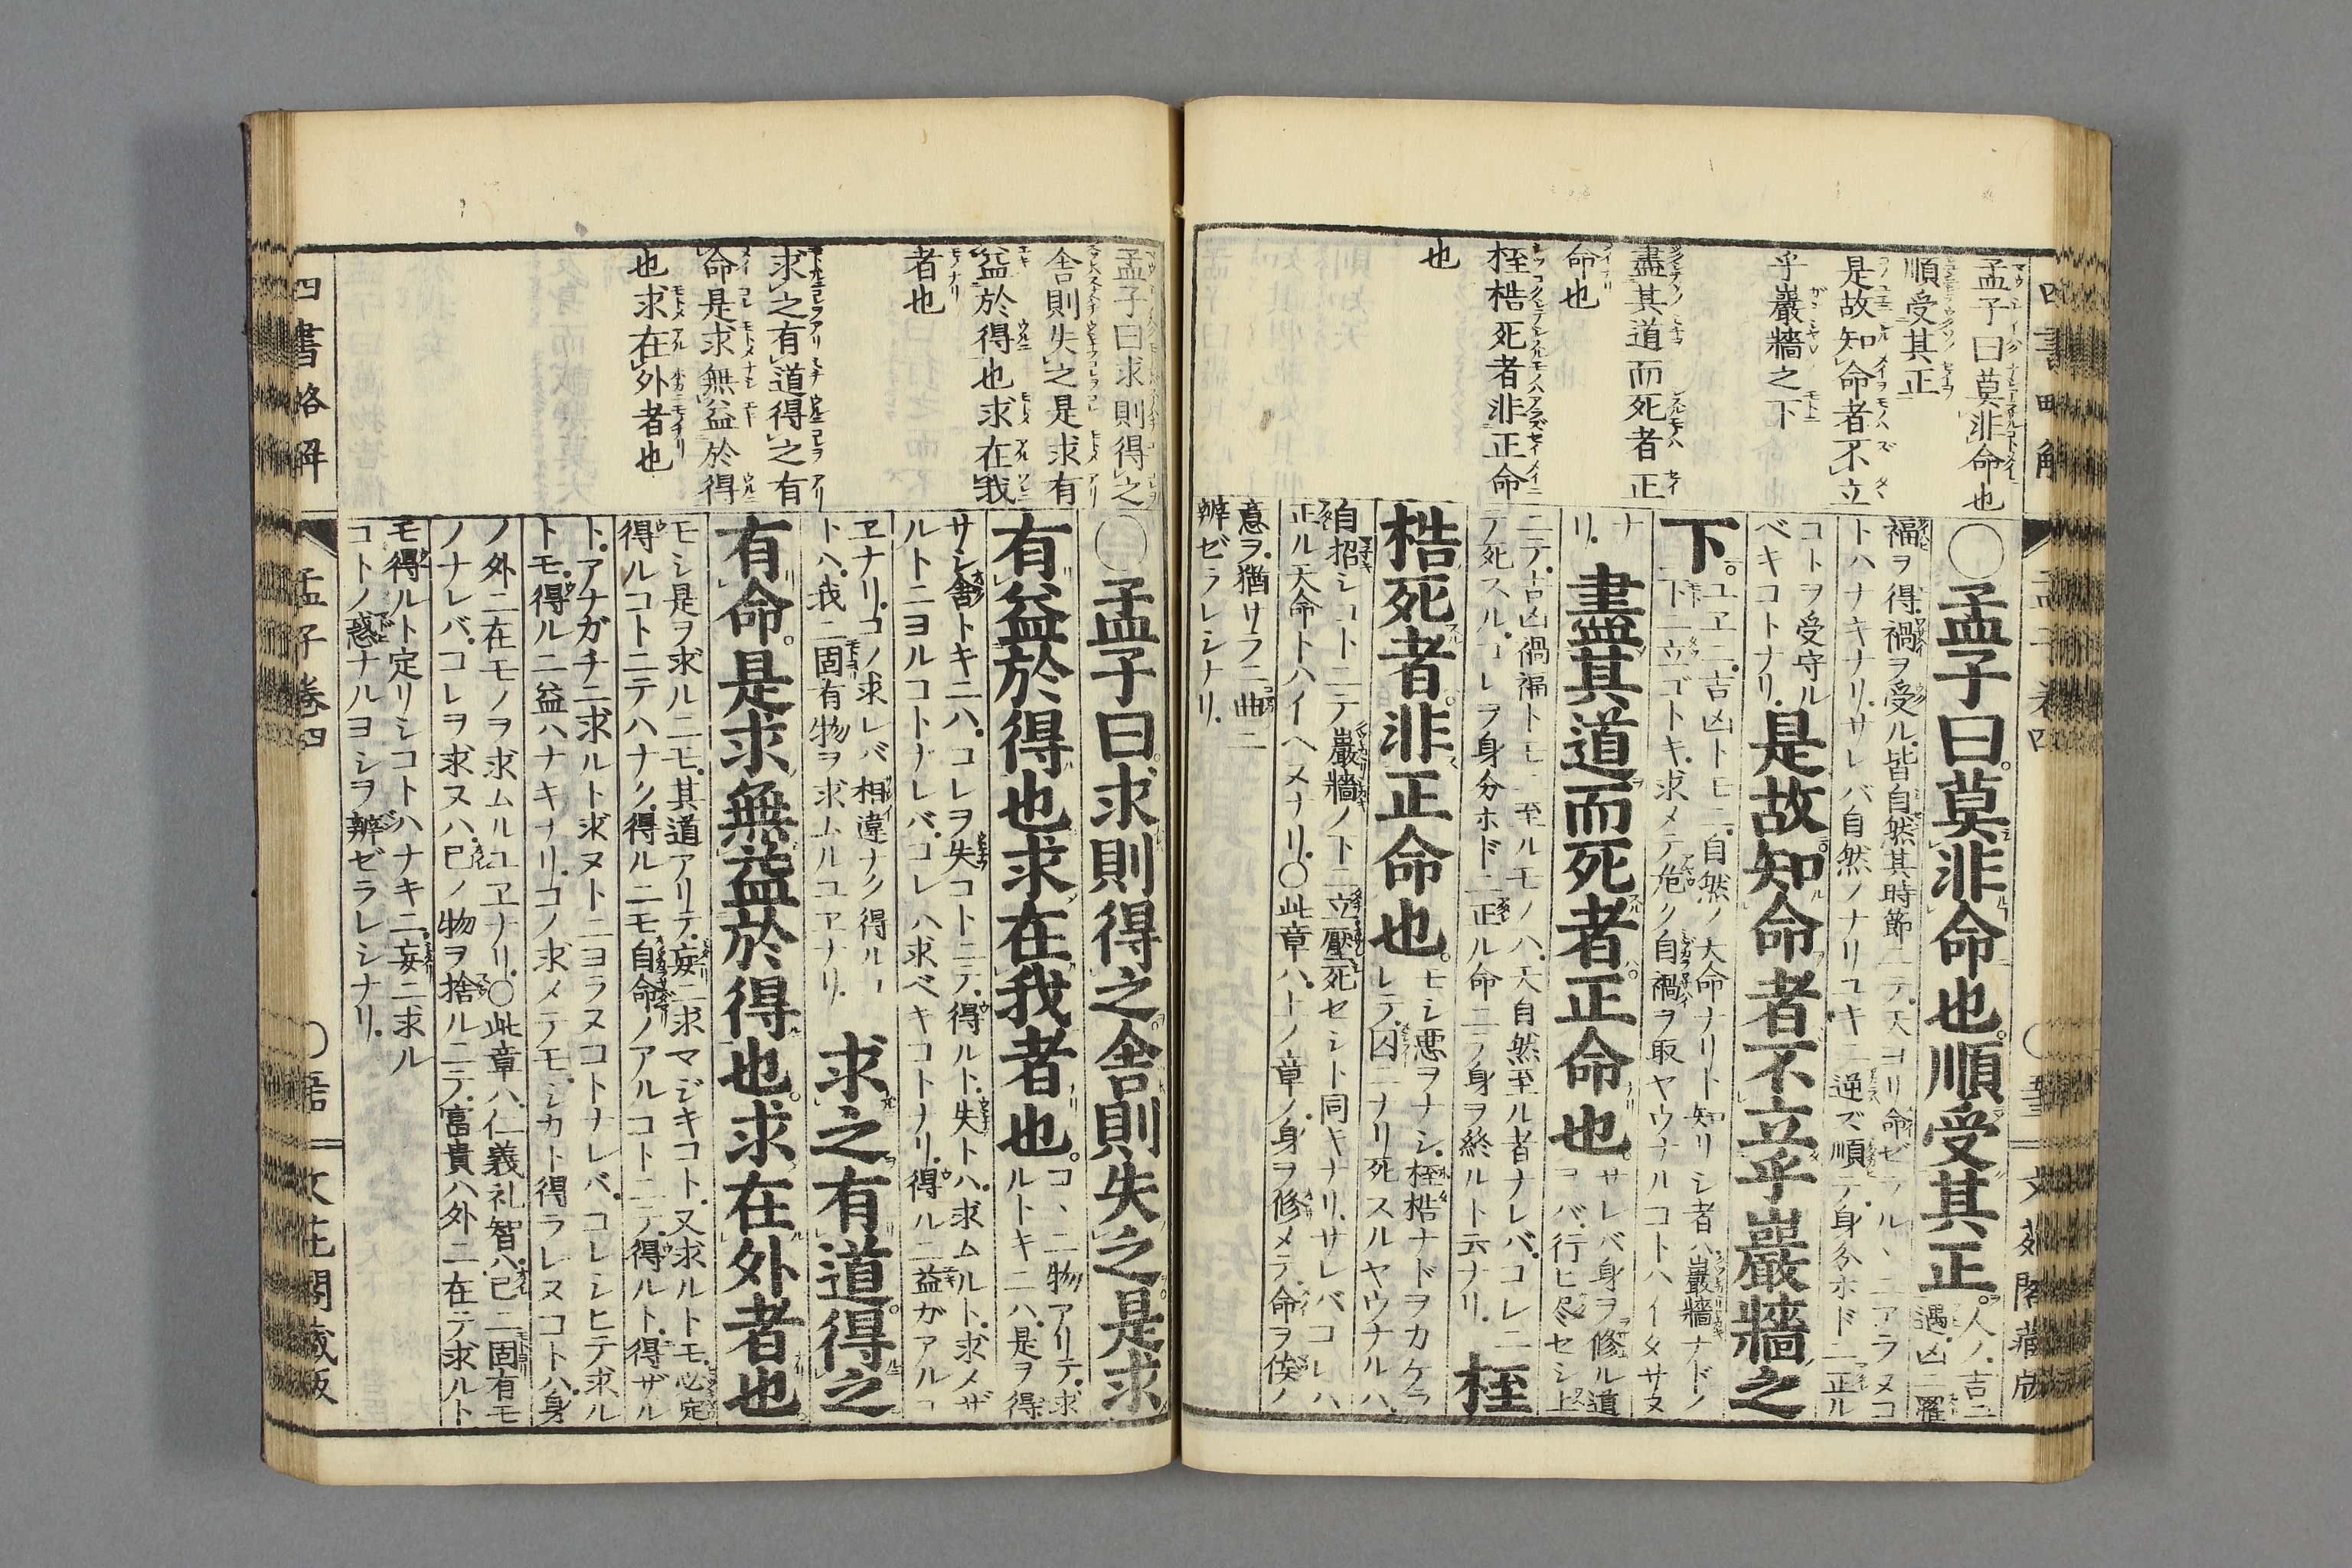 孟子曰莫非命也
順受其正
是故知命者不立
乎巖牆之下
盡其道而死者正
命也
桎梏死者非正命
也
〇孟子曰莫非命也順受其正人ノ吉ニ
遇凶ニ罹
福ヲ得禍ヲ受ル皆自然其時節ニテ天ヨリ命ゼラルヽニアラヌコ
トハナキナリサレバ自然ノナリユキニ逆ズ順テ身分ホドニ正ル
コトヲ受守ル
ベキコトナリ是故知命者不立乎巖牆之
下ユヱニ吉凶トモニ自然ノ大命ナリト知リシ者ハ巖牆ナドノ
下ニ立ゴトキ求メテ危ク自禍ヲ取ヤウナルコトハイタサヌ
ナ
リ盡其道而死者正命也サレバ身ヲ修ル道
ヲバ行ヒ尽セシ上
ニテ吉凶禍福トモニ至ルモノハ天自然至ル者ナレバコレニ
テ死スルコレヲ身分ホドニ正ル命ニテ身ヲ終ルト云ナリ桎
梏死者非正命也モシ悪ヲナシ桎梏ナドヲカケラ
レテ囚ニナリ死スルヤウナルハ
自招シコトニテ巖牆ノ下ニ立壓死セシト同キナリサレバコレハ
正ル天命トハイヘヌナリ〇此章ハ上ノ章ノ身ヲ修メテ命ヲ俟ノ
意ヲ猶サラニ曲ニ
辨ゼラレシナリ
孟子曰求則得之
舍則失之是求有
益於得也求在我
者也
求之有道得之有
命是求無益於得
也求在外者也
〇孟子曰求則得之舍則失之是求
有益於得也求在我者也コヽニ物アリテ求
ルトキニハ是ヲ得
サシ舍トキニハコレヲ失コトニテ得ルト失トハ求ムルト求メザ
ルトニヨルコトナレバコレハ求ベキコトナリ得ルニ益ガアルユ
ヱナリコノ求レバ相違ナク得ルー
トハ我ニ固有物ヲ求ムルユヱナリ求之有道得之
有命是求無益於得也求在外者也
モシ是ヲ求ルニモ其道アリテ妄ニ求マジキコト又求ルトモ必定
得ルコトニテハナク得ルニモ自命ノアルコトニテ得ルト得ザル
トアナガチニ求ルト求ヌトニヨラヌコトナレバコレシヒテ求ル
トモ得ルニ益ハナキナリコノ求メテモシカト得ラレヌコトハ身
ノ外ニ在モノヲ求ムルユヱナリ〇此章ハ仁義礼智ハ己ニ固有モ
ノナレバコレヲ求ヌハ己ノ物ヲ捨ルニテ富貴ハ外ニ在テ求ルト
モ得ルト定リシコトハナキニ妄ニ求ル
コトノ惑ナルヨシヲ辨ゼラレシナリ
四書略解
孟子卷四